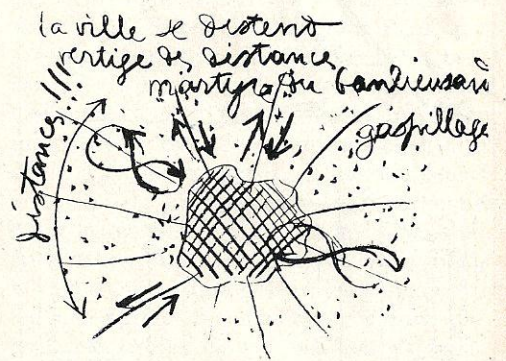 la ville se distend
vertige des distances
martyre du banlieusard
gaspillage
distances!!!